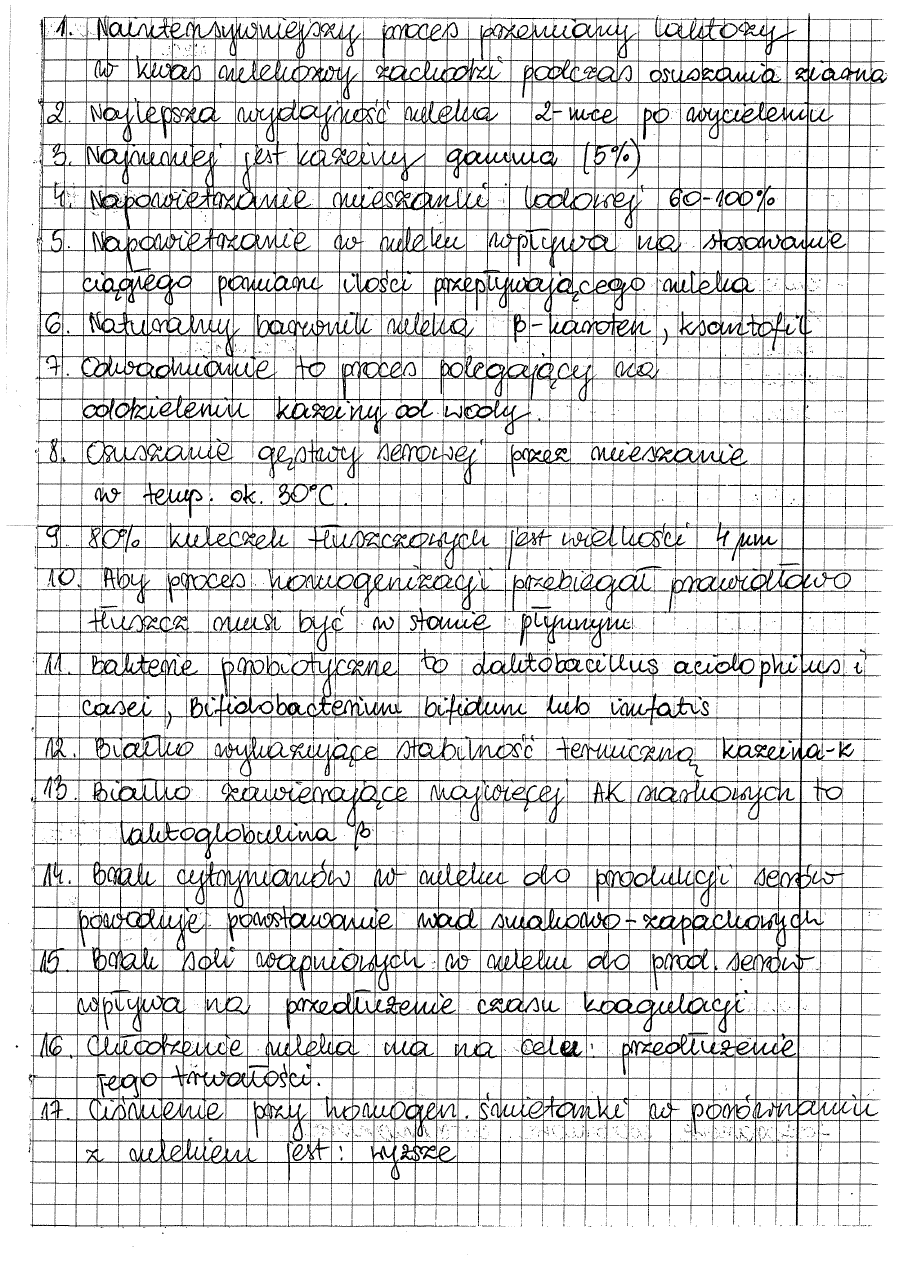 1. Najintensywniejszy proces przemiany laktozy
w kwas mlekowy zachodzi podczas osuszania ziarna
2. Najlepsza wydajność mleka 2-mce po wycieleniu
3. Najmniej jest kazeiny gamma (5%)
4. Napowietrzanie mieszanki lodowej 60-100%
5. Napowietrzanie w mleku wpływa na stosowanie
ciągłego pomiaru ilości przepływającego mleka
6. Naturalny barwnik mleka β-karoten, ksantofil
7. Odwadnianie to proces polegający na
oddzieleniu kazeiny od wody.
8. Osuszanie gęstwy serowej przez mieszanie
w temp. ok. 30°C.
9. 80% kuleczek tłuszczowych jest wielkości 4 µm
10. Aby proces homogenizacji przebiegał prawidłowo
tłuszcz musi być w stanie płynnym
11. Bakterie probiotyczne to Laktobacillus acidophilus i
casei, Bifidobacterium bifidum lub infatis
12. Białko wykazujące stabilność termiczną kazeina-k
13. Białko zawierające najwięcej AK siarkowych to
laktoglobulina β
14. Brak cytrynianów w mleku do produkcji serów
powoduje powstawanie wad smakowo-zapachowych
15. Brak soli wapniowych w mleku do prod. serów
wpływa na przedłużenie czasu koagulacji
16. Chłodzenie mleka ma na celu: przedłużenie
jego trwałości.
17. Ciśnienie przy homogen. śmietanki w porównaniu
z mlekiem jest: wyższe